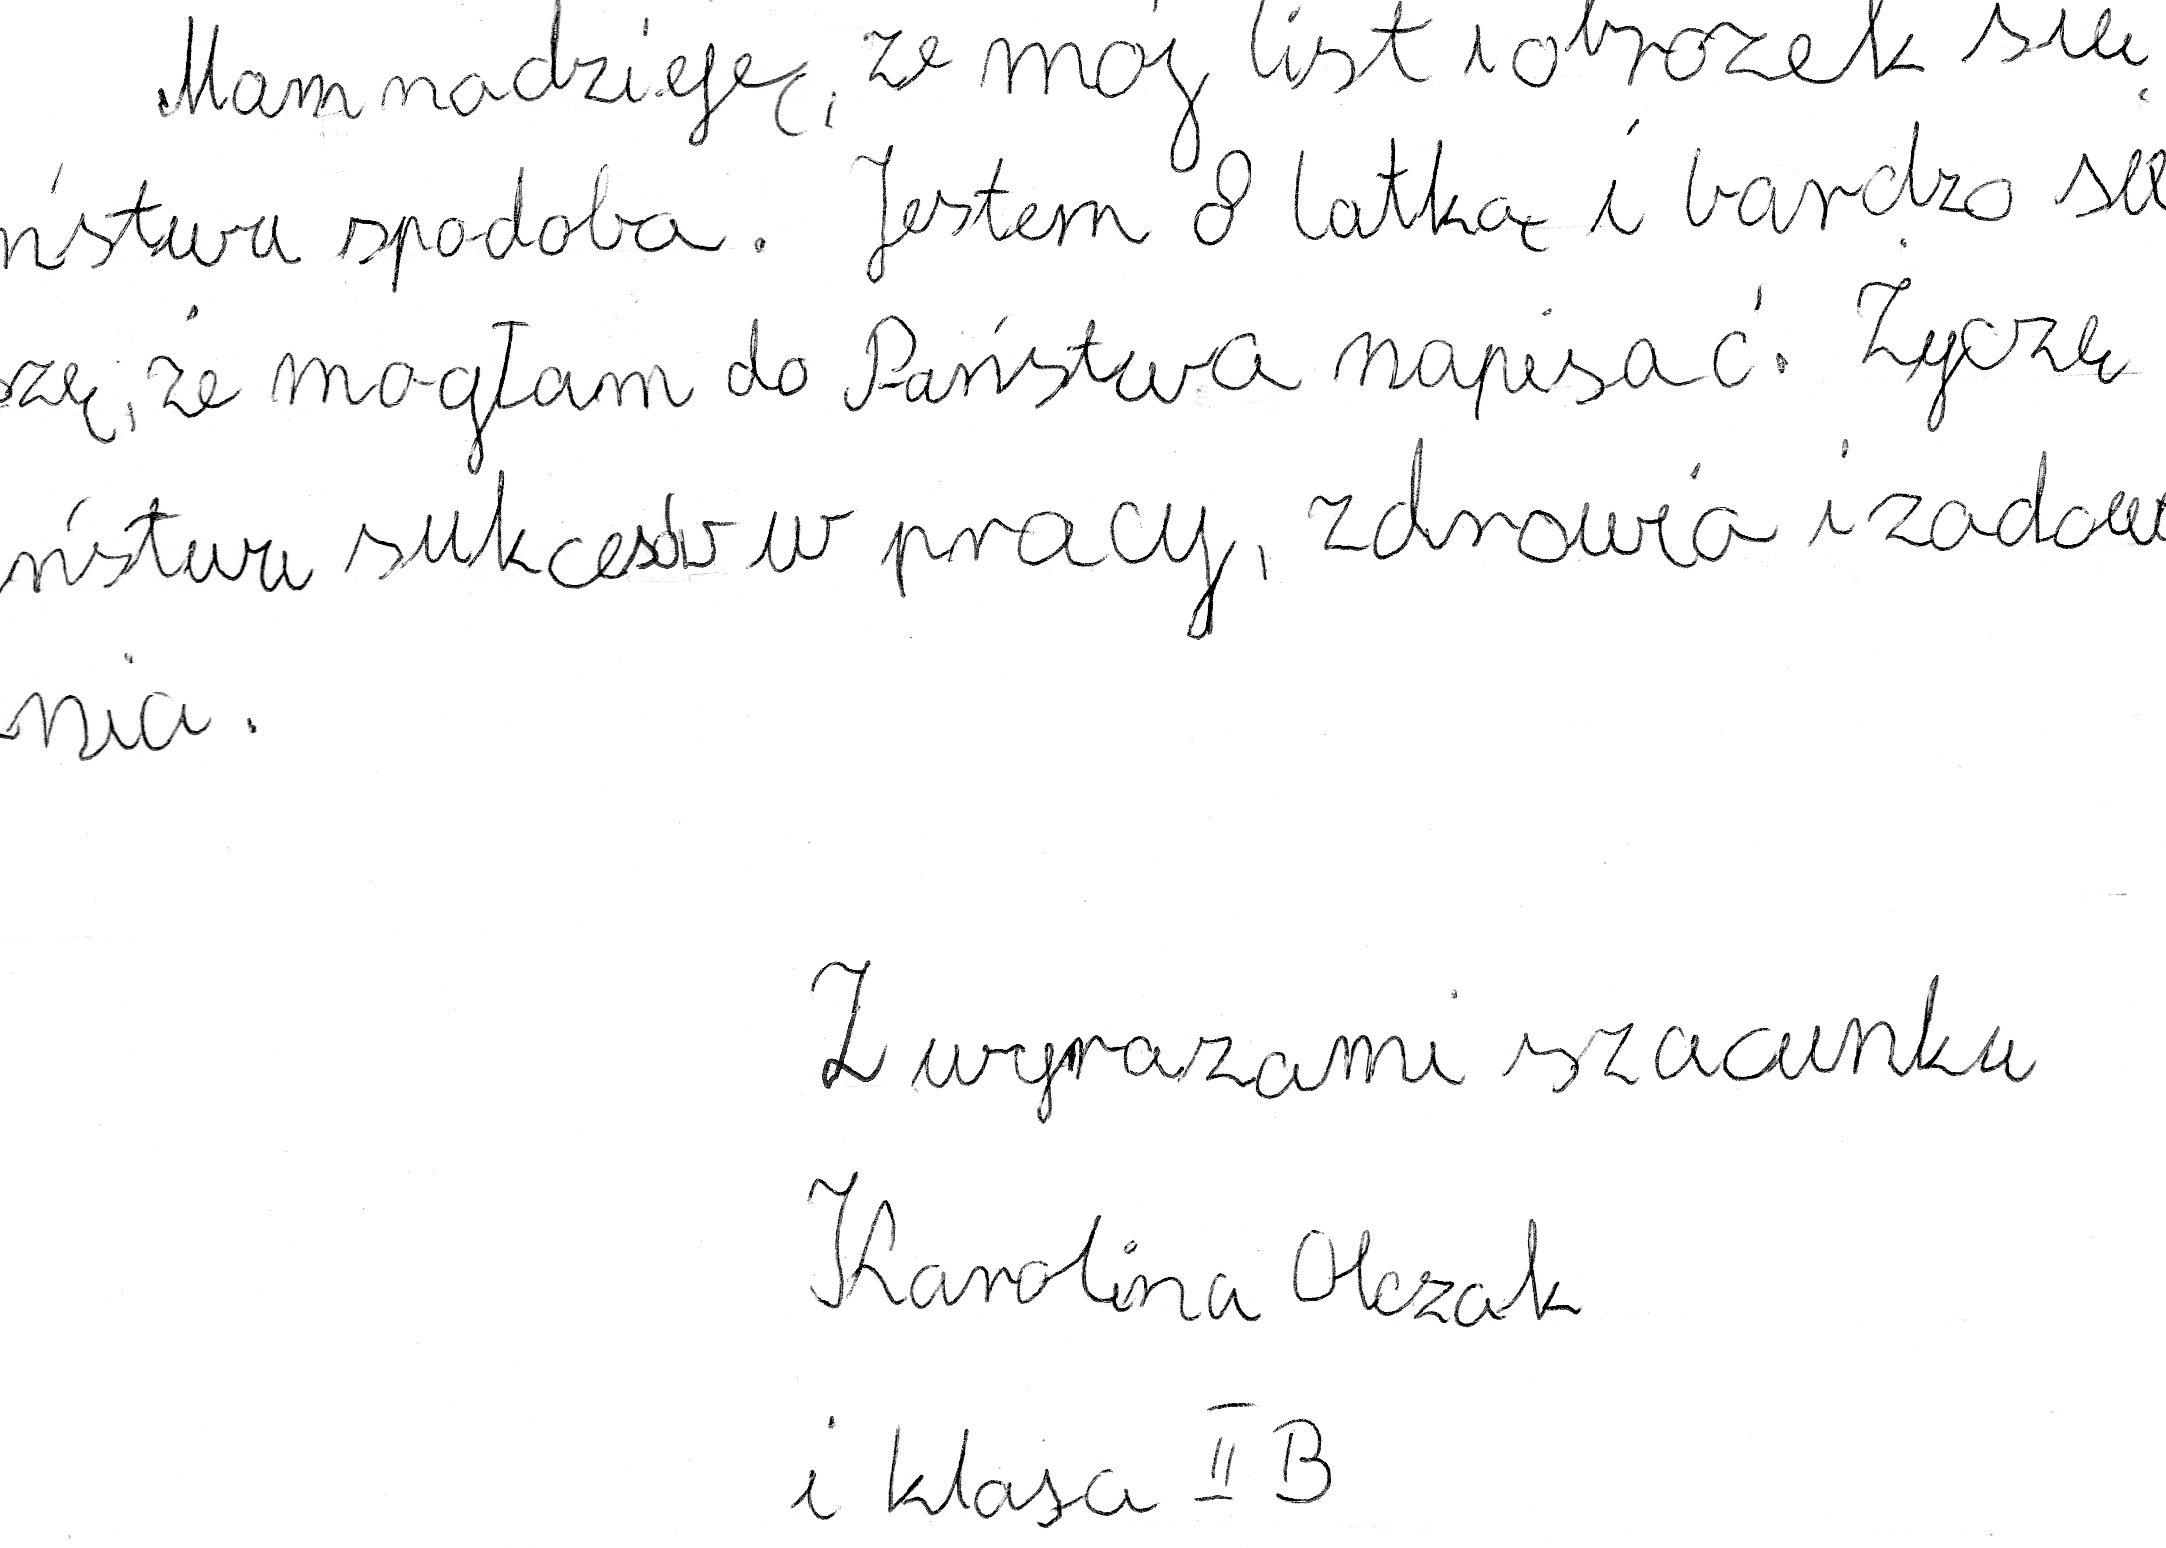 Mam nadzieję, że mój list i obrazek się
ństwu spodoba. Jestem 8 latką i bardzo się
szę, że mogłam do Państwa napisać. Życzę
ństwu sukcesów w pracy, zdrowia i zadowo
nia.
Z wyrazami szacunku
Karolina Olczak
i klasa II B